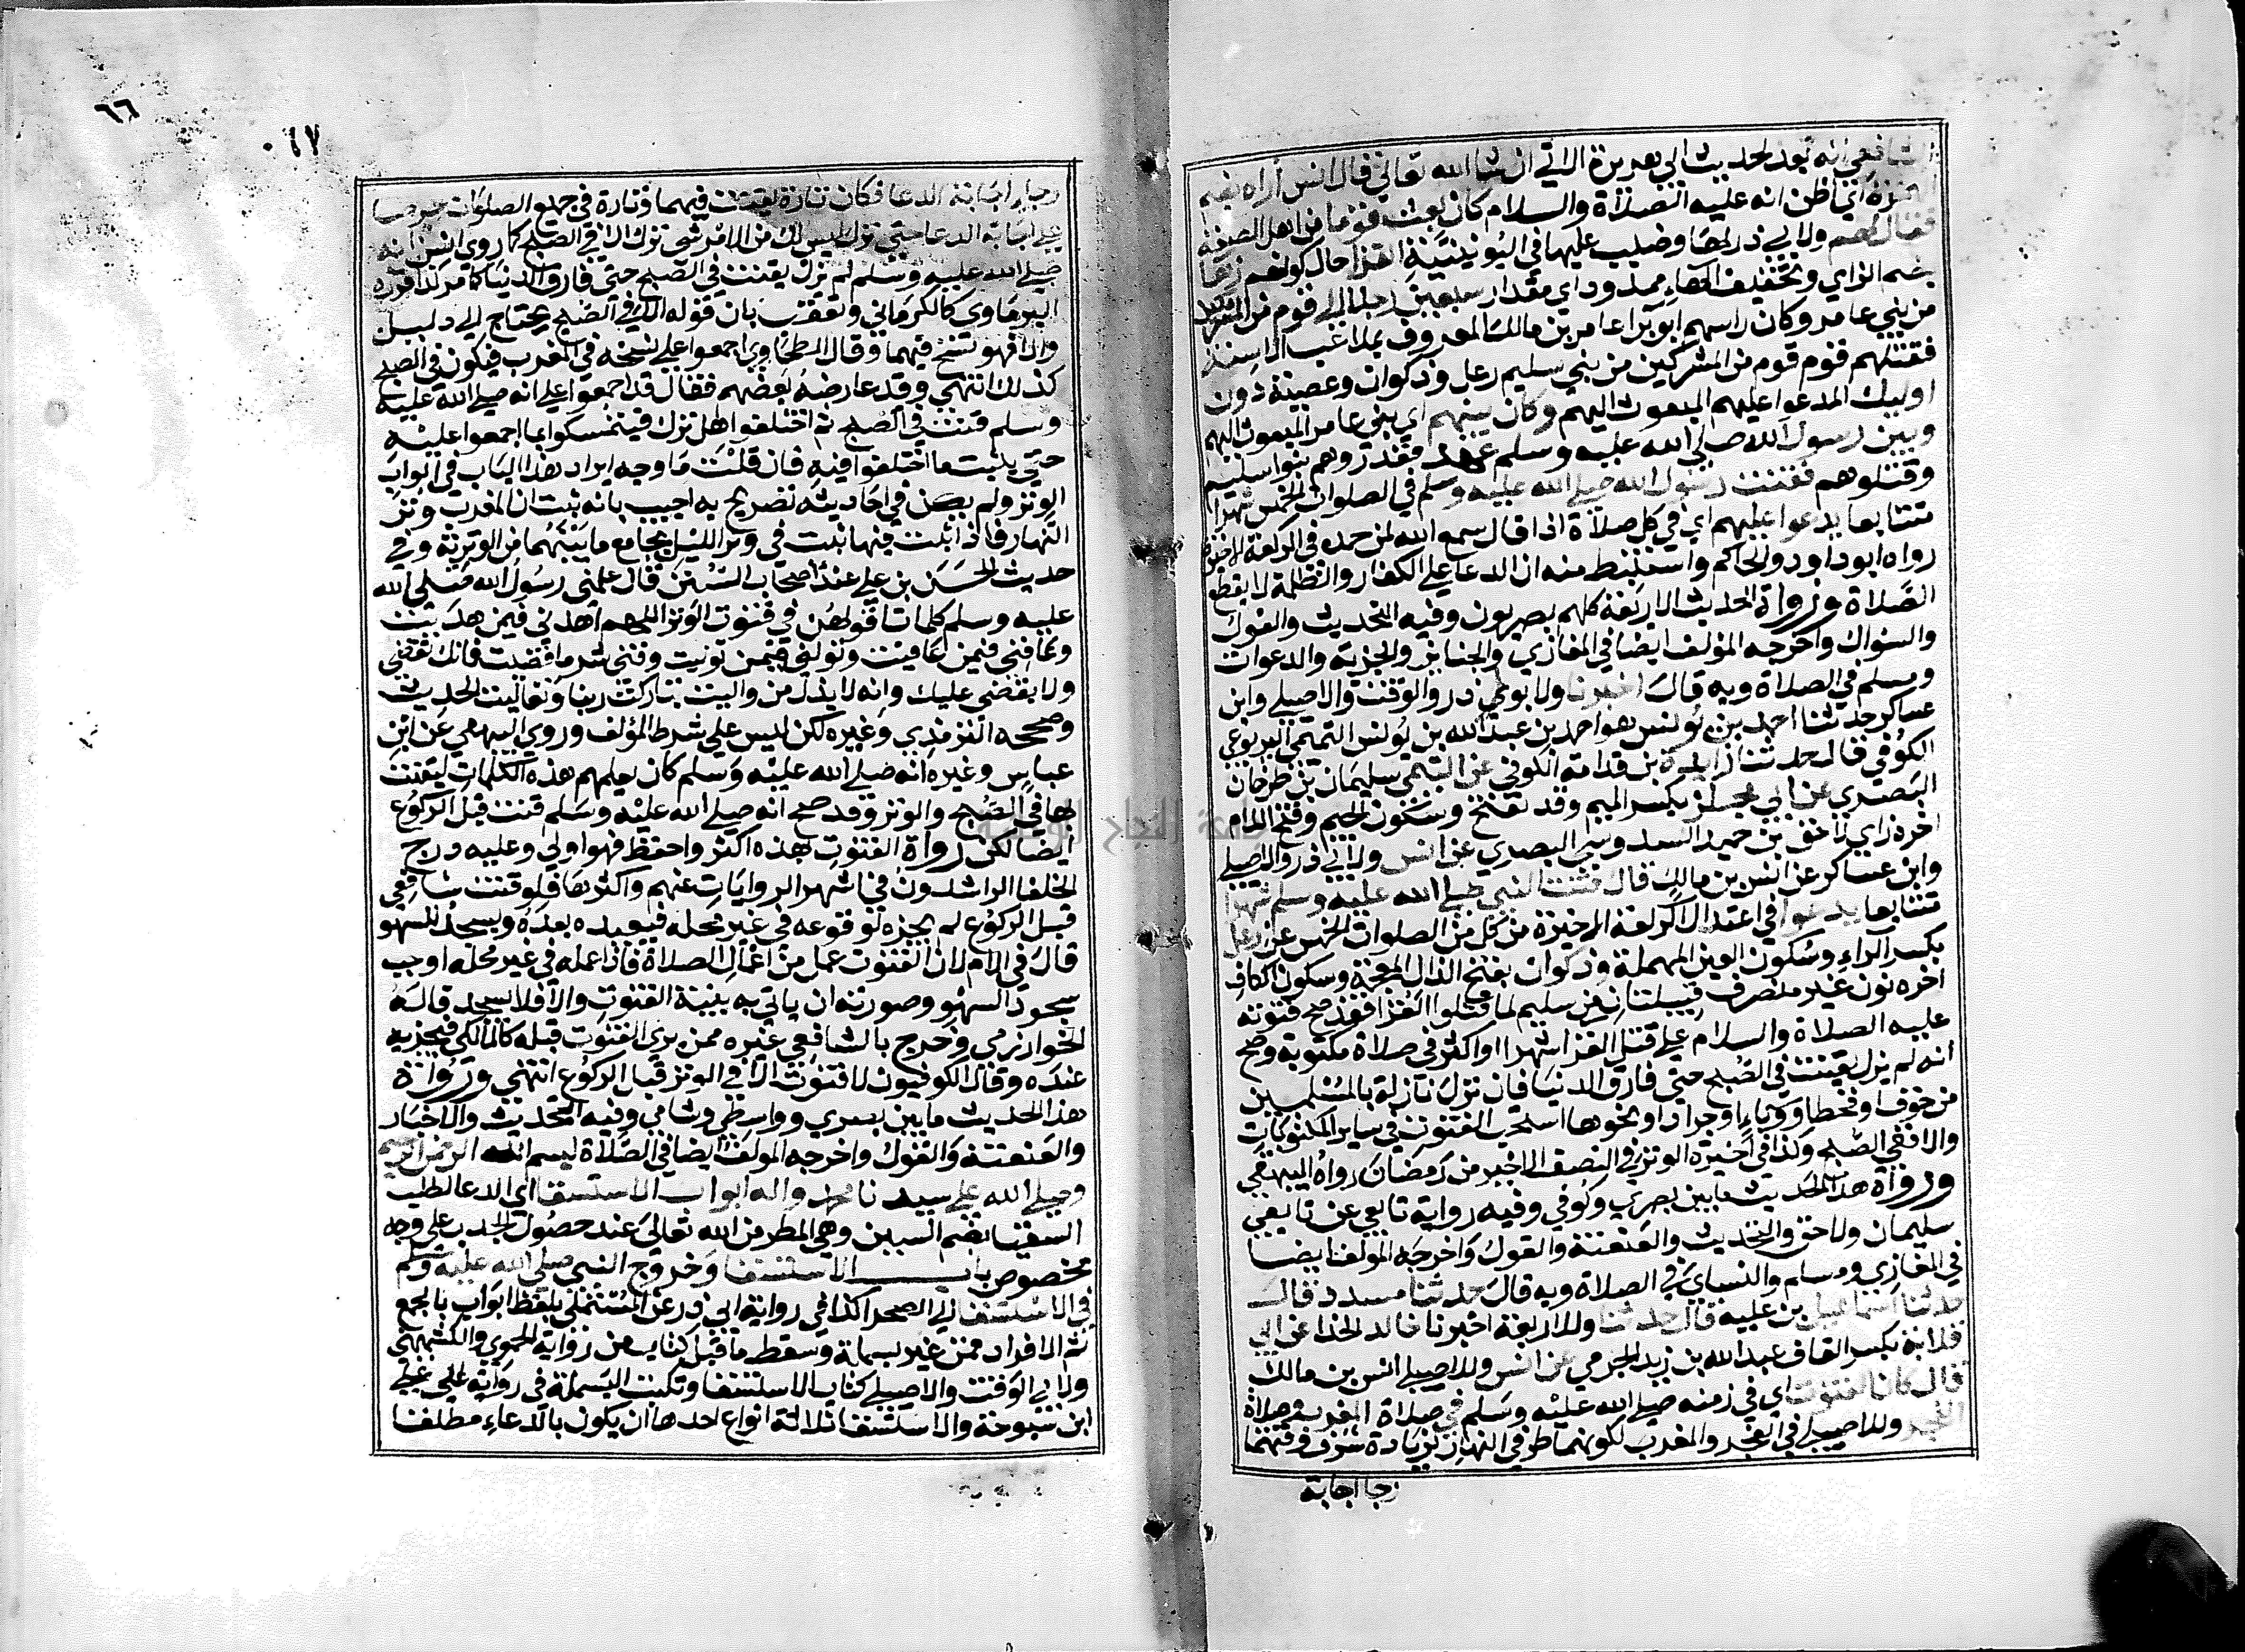 الشافعي انه بعد لحديث ابي هريرة الاتي ان شا الله تعالي قال انس أراه بضم
الهمزة اي اظن انه عليه الصلاة والسلام كان بعث قوما من اهل الصفة
يقال لهم ولابي ذر لها وضبب عليها في اليونينية القرا حال كونهم زها
بضم الزاي وتخفيف الهاء ممدود اي مقدار سبعين رجلا الي قوم من المشركين
من بني عامر وكان راسهم ابو برا عامر بن مالك المعروف بملاعب الاسنة
فقتلهم قوم قوم من المشركين من بني سليم رعل وذكوان وعصية دون
اوليك المدعوا عليهم المبعوث اليهم وكان بينهم اي بني عامر المبعوث اليهم
وبين رسول الله صلي الله عليه وسلم عهد فغدروهم بنوا سليم
وقتلوهم فقنت رسول الله صلي الله عليه وسلم في الصلوات الخمس شهرا
متتابعا يدعوا عليهم اي في كل صلاة اذا قال سمع الله لمن حمده في الركعة الاخيرة
رواه ابو داود والحاكم واستنبط منه ان الدعا علي الكفار والظلمة لا يقطع
الصلاة ورواة الحديث الاربعة كلهم بصريون وفيه التحديث والقول
والسوال واخرجه المولف ايضا في المغازي والجنايز والجزية والدعوات
ومسلم في الصلاة وبه قال اخبرنا ولابوي ذر والوقت والاصيلي وابن
عساكر حدثنا احمد بن يونس هو احمد بن عبد الله بن يونس التميمي اليربوعي
الكوفي قال حدثنا زايدة بن قدامة الكوفي عن التيمي سليمان بن طرخان
البصري عن ابي مجلز بكسر الميم وقد تفتح وسكون الجيم وفتح اللام
اخره زاي لاحق بن حميد السدوسي البصري عن انس ولابي ذر والاصيلي
وابن عساكر عن انس بن مالك قال قنت النبي صلي الله عليه وسلم شهرا
متتابعا يدعوا في اعتدال الركعة الاخيرة من كل من الصلوات الخمس علي رعل
بكسر الراء وسكون العين المهملة وذكوان بفتح الذال المعجمة وسكون الكاف
اخره نون غير منصرف قبيلتان من سليم لما قتلوا القرا فقد صح قنوته
عليه الصلاة والسلام علي قتل القرا شهرا او اكثر في صلاة مكتوبة وصح
انه لم يزل يقنت في الصبح حتي فارق الدنيا فان نزل نازلة بالمسلمين
من خوف او قحط او وباء او جراد او نحوها استحب القنوت في ساير المكتوبات
والا ففي الصبح وكذا في اخيرة الوتر في النصف الاخير من رمضان رواه البيهقي
ورواة هذا الحديث ما بين بصري وكوفي وفيه رواية تابعي عن تابعي
سليمان ولاحق والتحديث والعنعنة والقول واخرجه المولف ايضا
في المغازي ومسلم والنساي في الصلاة وبه قال حدثنا مسدد قال
حدثنا اسماعيل بن علية قال حدثنا وللاربعة اخبرنا خالد الحذا عن ابي
قلابة بكسر القاف عبد الله بن زيد الجرمي عن انس وللاصيلي انس بن مالك
قال كان القنوت اي في زمنه صلي الله عليه وسلم في صلاة المغرب وصلاة
الفجر وللاصيلي في الفجر والمغرب لكونهما طرفي النهار لزيادة شرف وقتهما
رجا اجابة
٦٦
٠١٧
رجا اجابة الدعا فكان تارة يقنت فيهما وتارة في جميع الصلوات حرصا
علي اجابة الدعا حتي نزل ليس لك من الامر شي ترك الا في الصبح كما روي انس انه
صلي الله عليه وسلم لم يزل يقنت في الصبح حتي فارق الدنيا كما مر كذا قرره
البرماوي كالكرماني وتعقب بان قوله الا في الصبح يحتاج الي دليل
والا فهو نسخ فيهما وقال الطحاوي اجمعوا علي نسخه في المغرب فيكون في الصبح
كذلك انتهي وقد عارضه بعضهم فقال قد اجمعوا علي انه صلي الله عليه
وسلم قنت في الصبح ثم اختلفوا هل ترك فيتمسكوا بما اجمعوا عليه
حتي يثبت ما اختلفوا فيه فان قلت ما وجه ايراد هذا الباب في ابواب
الوتر ولم يكن في احاديثه تصريح به اجيب بانه ثبت ان المغرب وتر
النهار فاذا ثبت فيها ثبت في وتر الليل بجامع ما بينهما من الوترية وفي
حديث الحسن بن علي عند اصحاب السنن قال علمني رسول الله صلي الله
عليه وسلم كلمات اقولهن في قنوت الوتر اللهم اهدني فيمن هديت
وعافني فيمن عافيت وتولني فيمن توليت وقني شر ما قضيت فانك تقضي
ولا يقضي عليك وانه لا يذل من واليت تباركت ربنا وتعاليت الحديث
وصححه الترمذي وغيره لكن ليس علي شرط المولف وروي البيهقي عن ابن
عباس وغيره انه صلي الله عليه وسلم كان يعلمهم هذه الكلمات ليقنت
بها في الصبح والوتر وقد صح انه صلي الله عليه وسلم قنت قبل الركوع
ايضا لكن رواة القنوت بعده اكثر واحفظ فهو اولي وعليه درج
الخلفا الراشدون في اشهر الروايات عنهم واكثرها فلو قنت شافعي
قبل الركوع لم يجزه لوقوعه في غير محله فيعيده بعده ويسجد للسهو
قال في الام لان القنوت عمل من اعمال الصلاة فاذا عمله في غير محله اوجب
سجود السهو وصورته ان ياتي به بنية القنوت والا فلا يسجد قاله
الخوارزمي وخرج بالشافعي غيره ممن يري القنوت قبله كالمالكي فيجزيه
عنده وقال الكوفيون لا قنوت الا في الوتر قبل الركوع انتهي ورواة
هذا الحديث ما بين بصري وواسطي وشامي وفيه التحديث والاخبار
والعنعنة والقول واخرجه المولف ايضا في الصلاة بسم الله الرحمن الرحيم
وصلي الله علي سيدنا محمد واله ابواب الاستسقا اي الدعا لطلب
السقيا بضم السين وهي المطر من الله تعالي عند حصول الجدب علي وجه
مخصوص باب الاستسقا وخروج النبي صلي الله عليه وسلم
في الاستسقا الي الصحرا كذا في رواية ابي ذر عن المستملي بلفظ ابواب بالجمع
ثم الافراد من غير بسملة وسقط ما قبل باب من رواية الحموي والكشميهني
ولابي الوقت والاصيلي كتاب الاستسقا وثبت البسملة في رواية علي
ابن شبوية والاستسقا ثلاثة انواع احدها ان يكون بالدعاء مطلقا